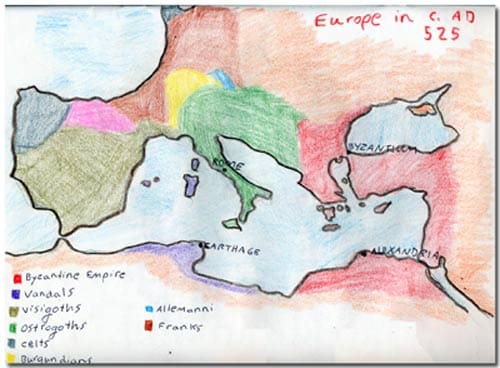 Europe in c. AD
525
BYZANTIUM
ROME
CARTHAGE
ALEXANDRIA
Byzantine Empire
Vandals
Visigoths
Ostrogoths
Celts
Burgundians
Allemanni
Franks